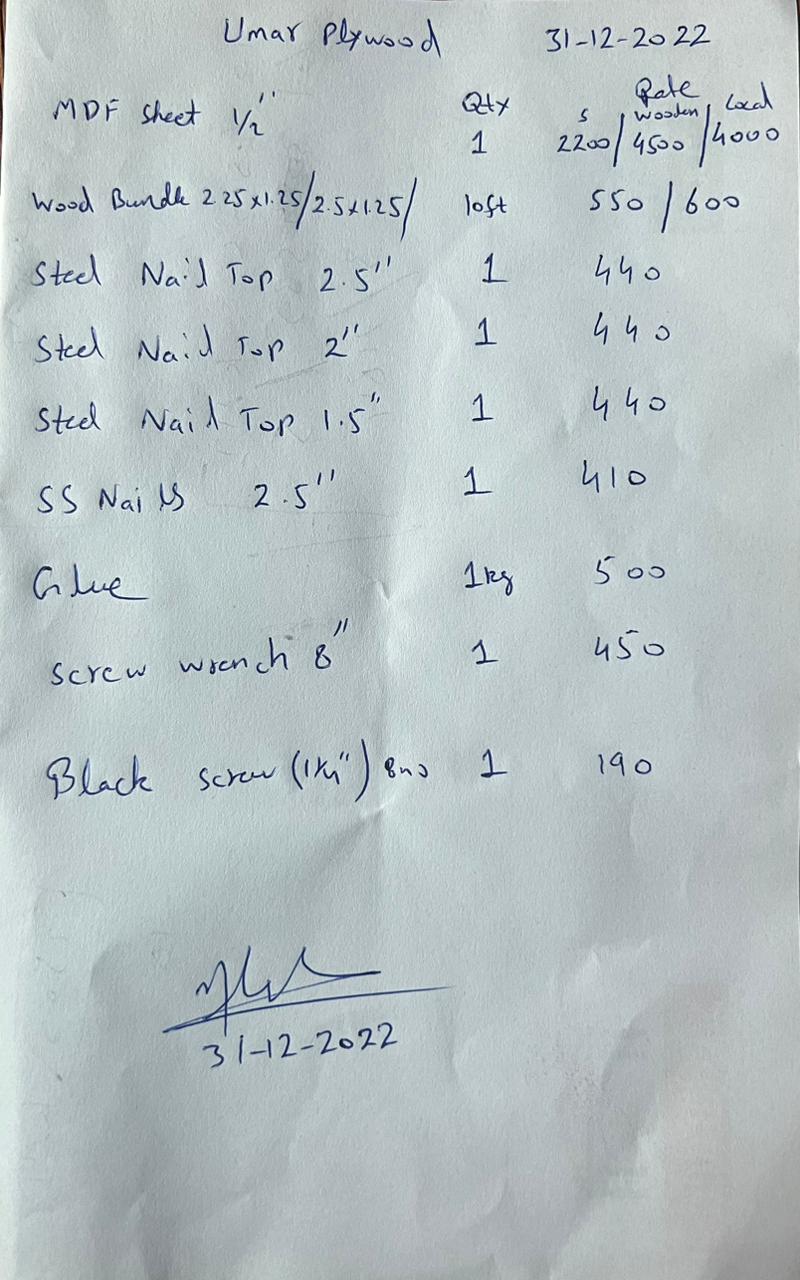 Umar Plywood 31-12-2022
Qty Rate
MDF sheet 1/2" 1 S 2200/ wooden 4500 / Local 4000
Wood Bundle 2.25x1.25/2.5x1.25/ 10ft 550/600
Steel Nail Top 2.5" 1 440
Steel Nail Top 2" 1 440
Steel Nail Top 1.5" 1 440
SS Nails 2.5" 1 410
Glue 1kg 500
Screw wrench 8" 1 450
Black screw (1 1/4") 8no 1 190
31-12-2022